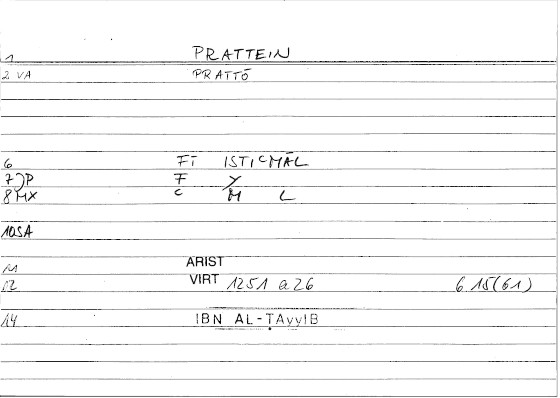 1 PRATTEIN
2 VA PRATTŌ
6 FĪ ISTIᶜMĀL
7 JP F Y
8 MX C M L
10SA
11 ARIST
12 VIRT 1251 a 26 6.15(61)
14 IBN AL-TAyyIB